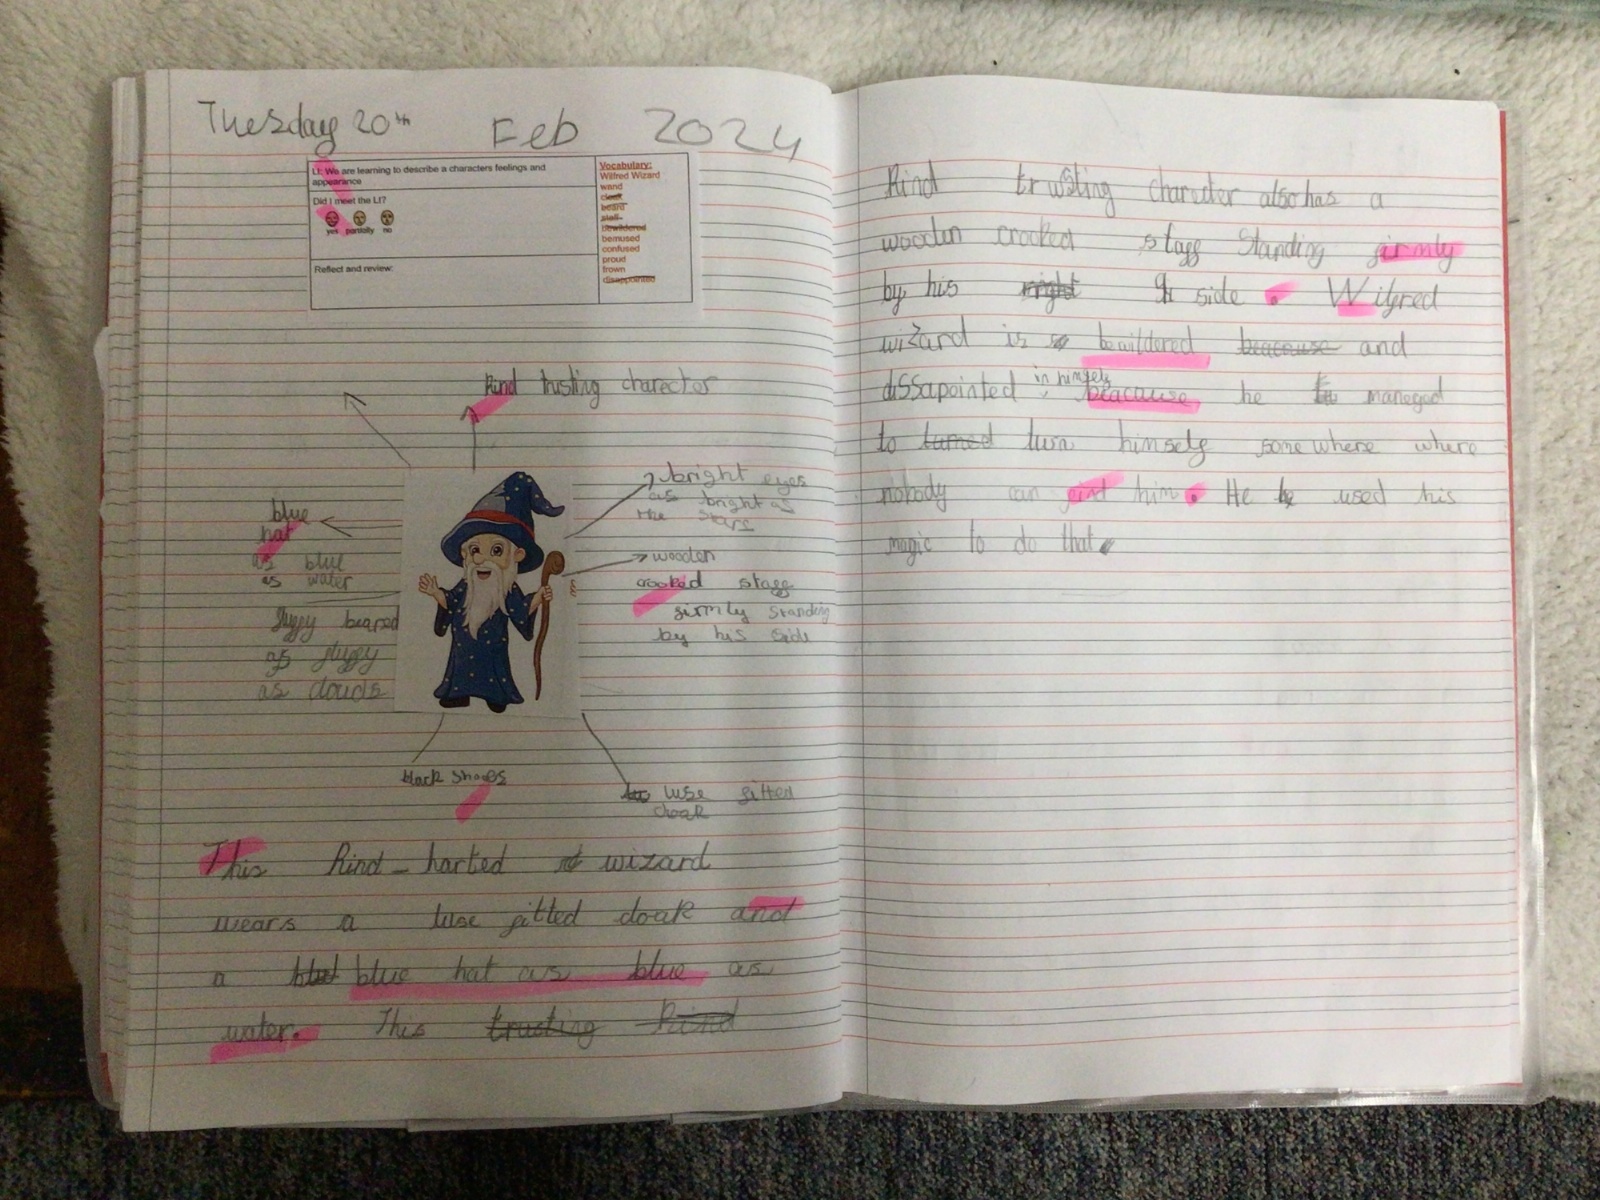 Tuesday 20th Feb 2024
LI: We are learning to describe a characters feelings and
appearance
Did I meet the LI?
yes partially no
Reflect and review:
Vocabulary:
Wilfred Wizard
wand
cloak
beard
staff
bewildered
bemused
confused
proud
frown
disappointed
Kind trusting charector
bright eyes
as bright as
the stars
blue
hat
as blue
as water
wooden
crooked staff
firmly standing
by his side
fluffy bearsd
as fluffy
as clouds
black shoes
luse fitted
cloak
This kind-harted wizard
wears a luse fitted cloak and
a blue hat as blue as
water. This trusting kind
Kind trusting charecter also has a
wooden crooked staff standing firmly
by his right side. Wilfred
wizard is bewildered beacause and
dissapointed in himself beacause he maneged
to turned turn himself some where where
nobody can him. He used his
magic to do that